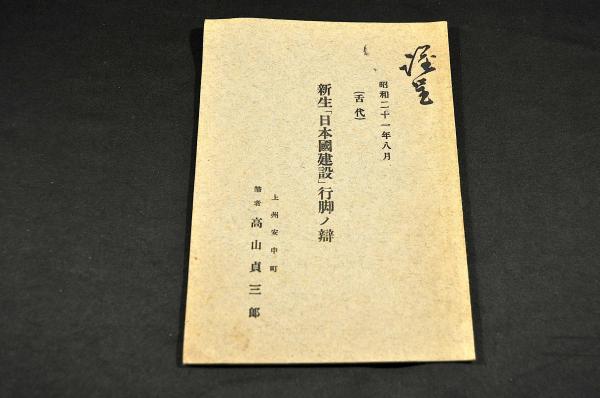 謹呈
昭和二十一年八月
(舌代)
新生「日本國建設」行脚ノ辯
上州安中町
著者 高山貞三郎